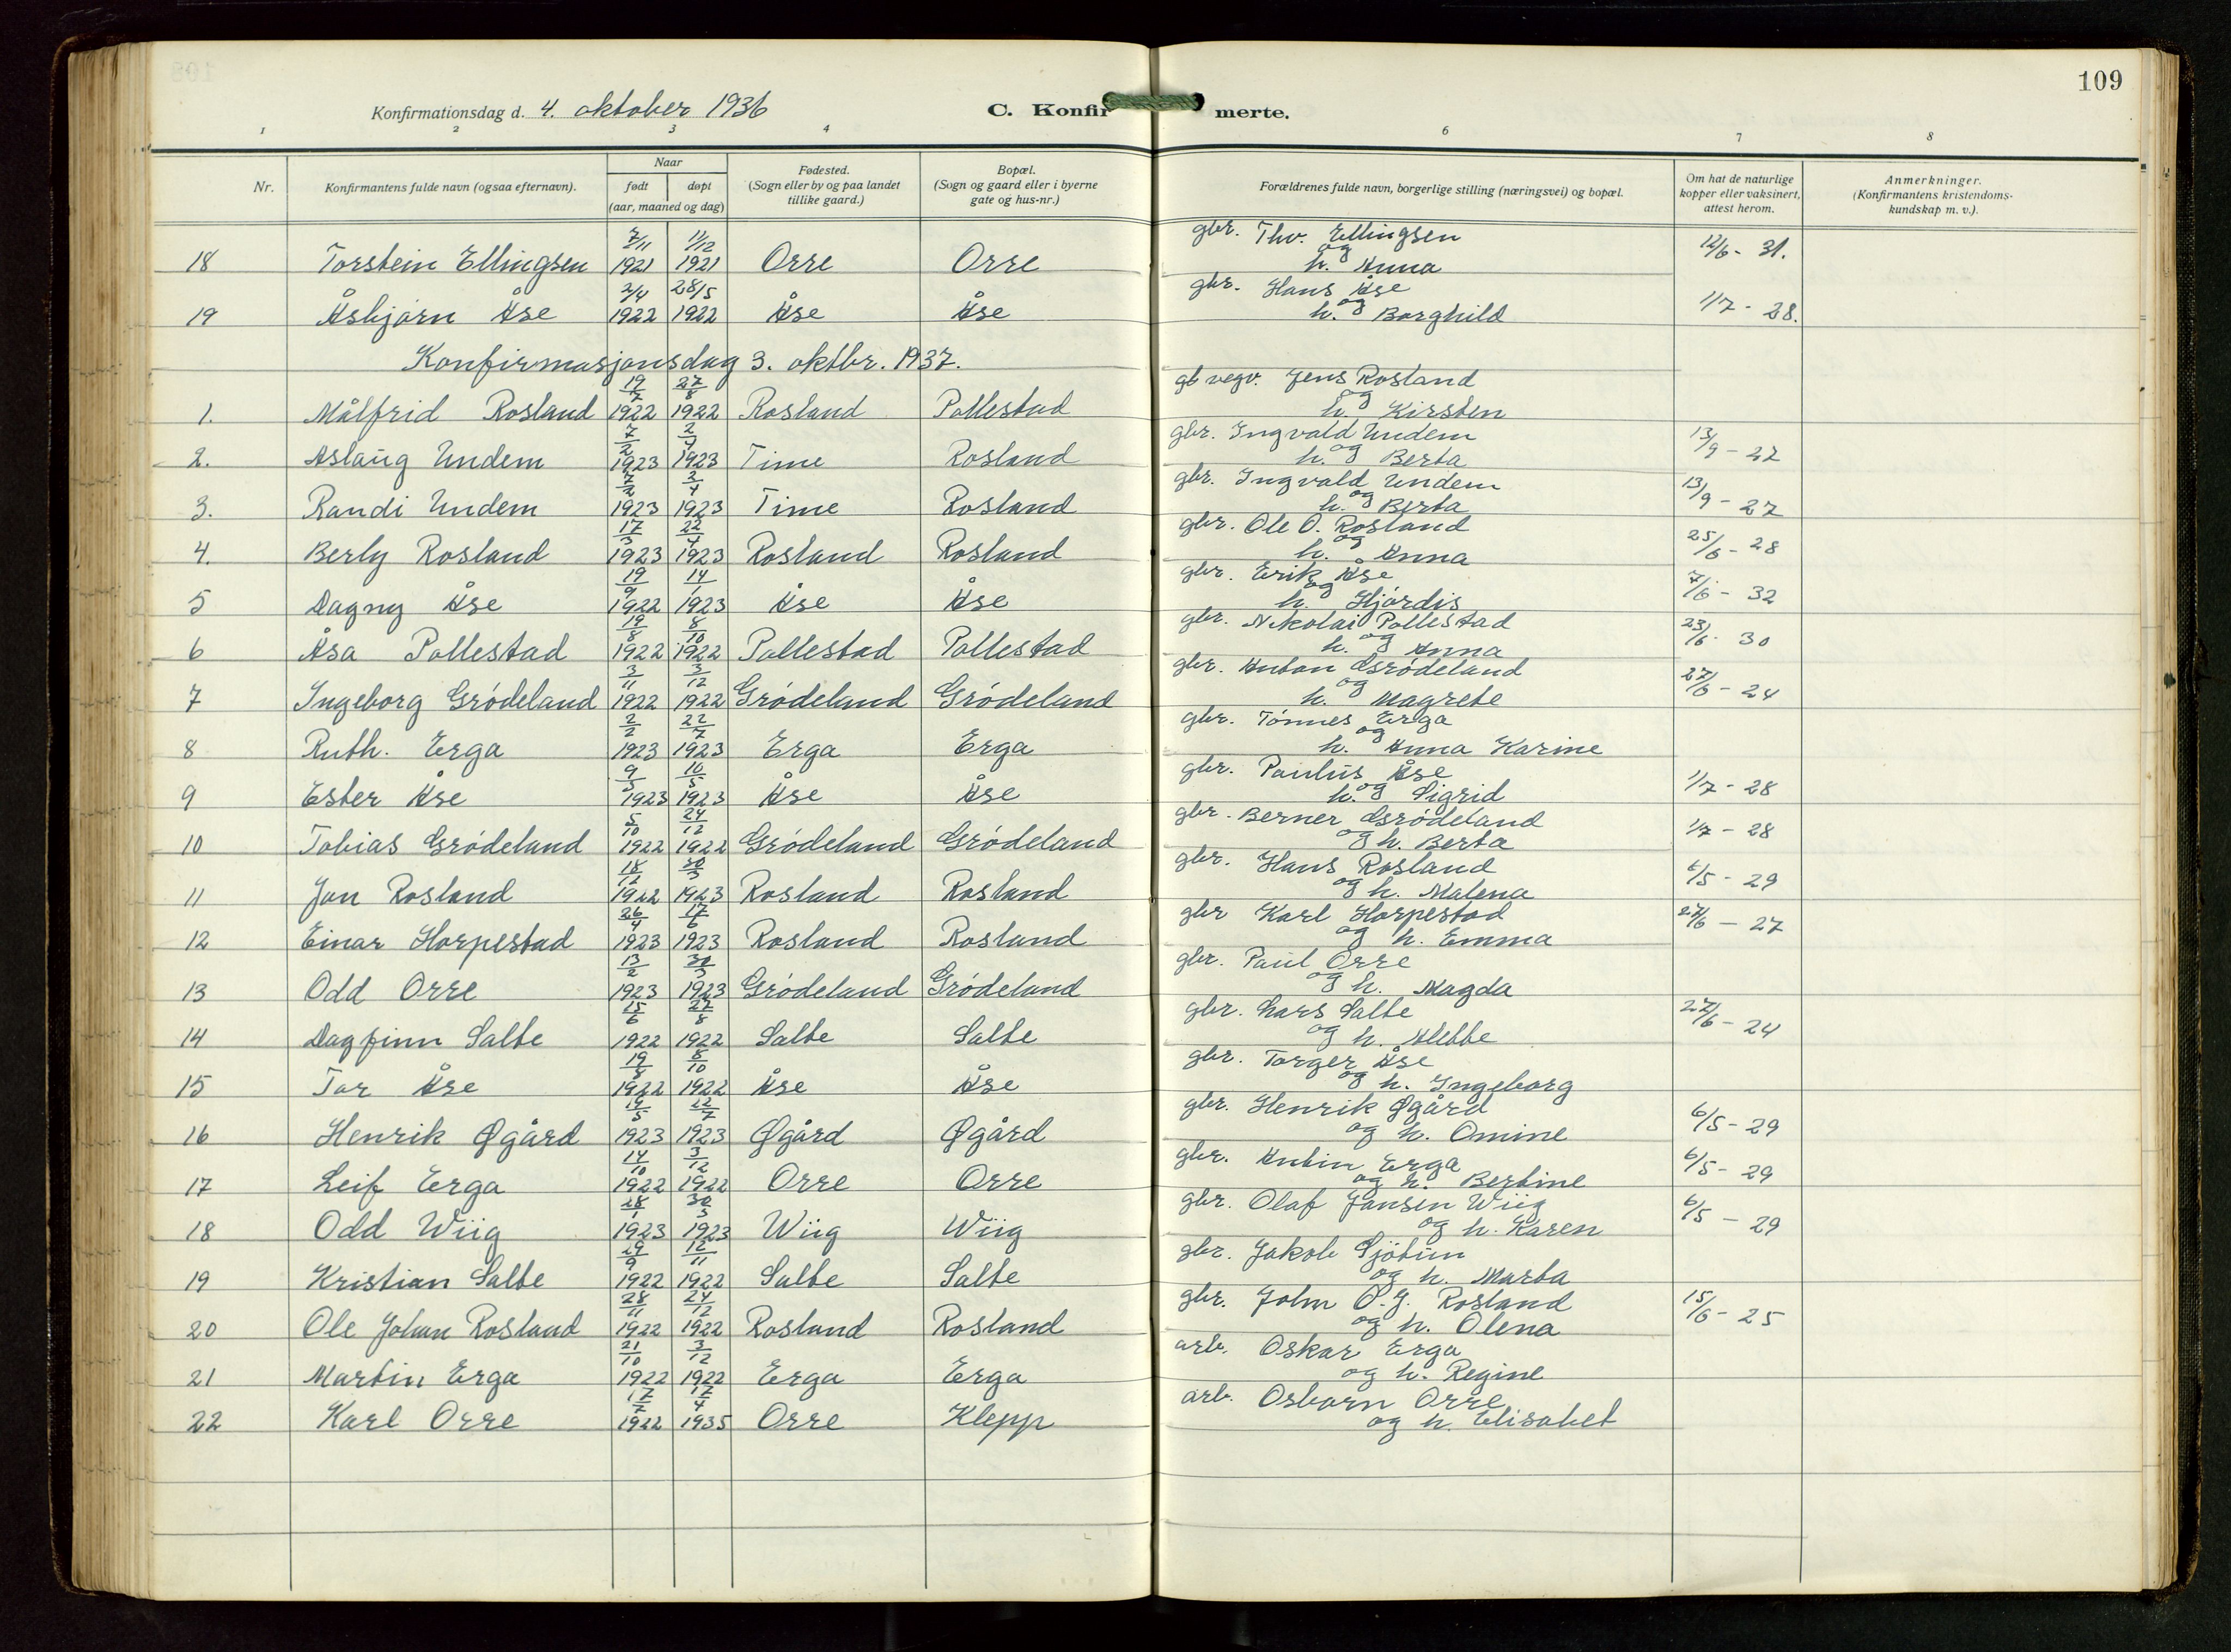 109
Konfirmationsdag d. 4. oktober 1936
C. Konfirmerte.
1 2 3 4 6 7 8
Nr.
Konfirmantens fulde navn (ogsaa efternavn).
Naar
født døpt
(aar, maaned og dag)
Fødested.
(Sogn eller by og paa landet
tillike gaard.)
Bopæl.
(Sogn og gaard eller i byerne
gate og hus-nr.)
Forældrenes fulde navn, borgerlige stilling (næringsvei) og bopæl.
Om hat de naturlige
kopper eller vaksinert,
attest herom.
Anmerkninger.
(Konfirmantens kristendoms-
kundskap m. v.).
18 Torstein Ellingsen 7/11 1921 11/12 1921 Orre Orre gbr. Thv. Ellingsen og h. Anna 12/6 - 31.
19 Åsbjørn Åse 2/4 1922 28/5 1922 Åse Åse gbr. Hans Åse og h. Borghild 1/7 - 28.
Konfirmasjonsdag 3. oktbr. 1937.
1. Målfrid Rosland 19/7 1922 27/8 1922 Rosland Pollestad gb vegv. Jens Rosland og h. Kirsten
2. Aslaug Undem 7/2 1923 2/4 1923 Time Rosland gbr. Ingvald Undem og h. Berta 13/9 - 27
3. Randi Undem 7/2 1923 2/4 1923 Time Rosland gbr. Ingvald Undem og h. Berta 13/9 - 27
4. Berly Rosland 17/3 1923 22/4 1923 Rosland Rosland gbr. Ole O. Rosland og h. Anna 25/6 - 28
5 Dagny Åse 19/9 1922 14/1 1923 Åse Åse gbr. Erik Åse og h. Hjördis 7/6 - 32
6 Åsa Pollestad 19/8 1922 8/10 1922 Pollestad Pollestad gbr. Nikolai Pollestad og h. Anna 23/6 30
7 Ingeborg Grödeland 3/11 1922 3/12 1922 Grödeland Grödeland gbr. Anton Grödeland og h. Magrete 27/6 - 24
8 Ruth. Erga 2/2 1923 22/7 1923 Erga Erga gbr. Tönnes Erga og h. Anna Karine
9 Ester Åse 9/3 1923 10/5 1923 Åse Åse gbr. Paulus Åse og h. Sigrid 1/7 - 28
10 Tobias Grödeland 5/10 1922 24/12 1922 Grödeland Grödeland gbr. Berner Grödeland og h. Berta 1/7 - 28
11 Jon Rosland 18/12 1922 30/3 1923 Rosland Rosland gbr. Hans Rosland og h. Malena 6/5 - 29
12 Einar Horpestad 26/4 1923 17/6 1923 Rosland Rosland gbr Karl Horpestad og h. Emma 27/6 - 27
13 Odd Orre 13/2 1923 30/3 1923 Grödeland Grödeland gbr. Paul Orre og h. Magda
14 Dagfinn Salte 25/6 1922 27/8 1922 Salte Salte gbr. Lars Salte og h. Alette 27/6 - 24
15 Tor Åse 19/8 1922 8/10 1922 Åse Åse gbr. Torger Åse og h. Ingeborg
16 Henrik Øgård 19/5 1923 22/7 1923 Øgård Øgård gbr. Henrik Øgård og h. Omine 6/5 - 29
17 Leif Erga 14/10 1922 3/12 1922 Orre Orre gbr. Antin Erga og h. Bertine 6/5 - 29
18 Odd Wiig 28/1 1923 30/3 1923 Wiig Wiig gbr. Olaf Jansen Wiig og h. Karen 6/5 - 29
19 Kristian Salte 29/9 1922 12/11 1922 Salte Salte gbr. Jakob Sjötun og h. Marta
20 Ole Johan Rosland 28/11 1922 24/12 1922 Rosland Rosland gbr. John O. J. Rosland og h. Olena 15/6 - 25
21 Martin Erga 21/10 1922 3/12 1922 Erga Erga arb. Oskar Erga og h. Regine
22 Karl Orre 17/7 1922 17/4 1935 Orre Klepp arb. Osborn Orre og h. Elisabet